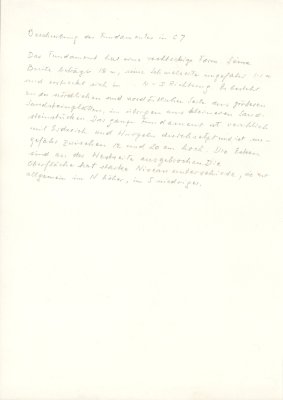 Beschreibung des Fundamentes in C7
Das Fundament hat eine rechteckige Form. Seine
Breite beträgt 1 m, seine Schmalseite ungefähr m
und erstreckt sich in Richtung. Es besteht
an der nördlichen und nordöstlichen Seite aus grösseren
Sandsteinplatten, im übrigen aus kleineren Sand-
steinstücken. Das ganze Fundament ist reichlich
mit Erdreich und Wurzeln durchsetzt und ist un-
gefähr zwischen 1 und 20 cm hoch. Die Ecken
sind an der Westseite ausgebrochen. Die
Oberfläche hat starke Niveauunterschiede, sie ist
allgemein im N höher, im S niedriger.